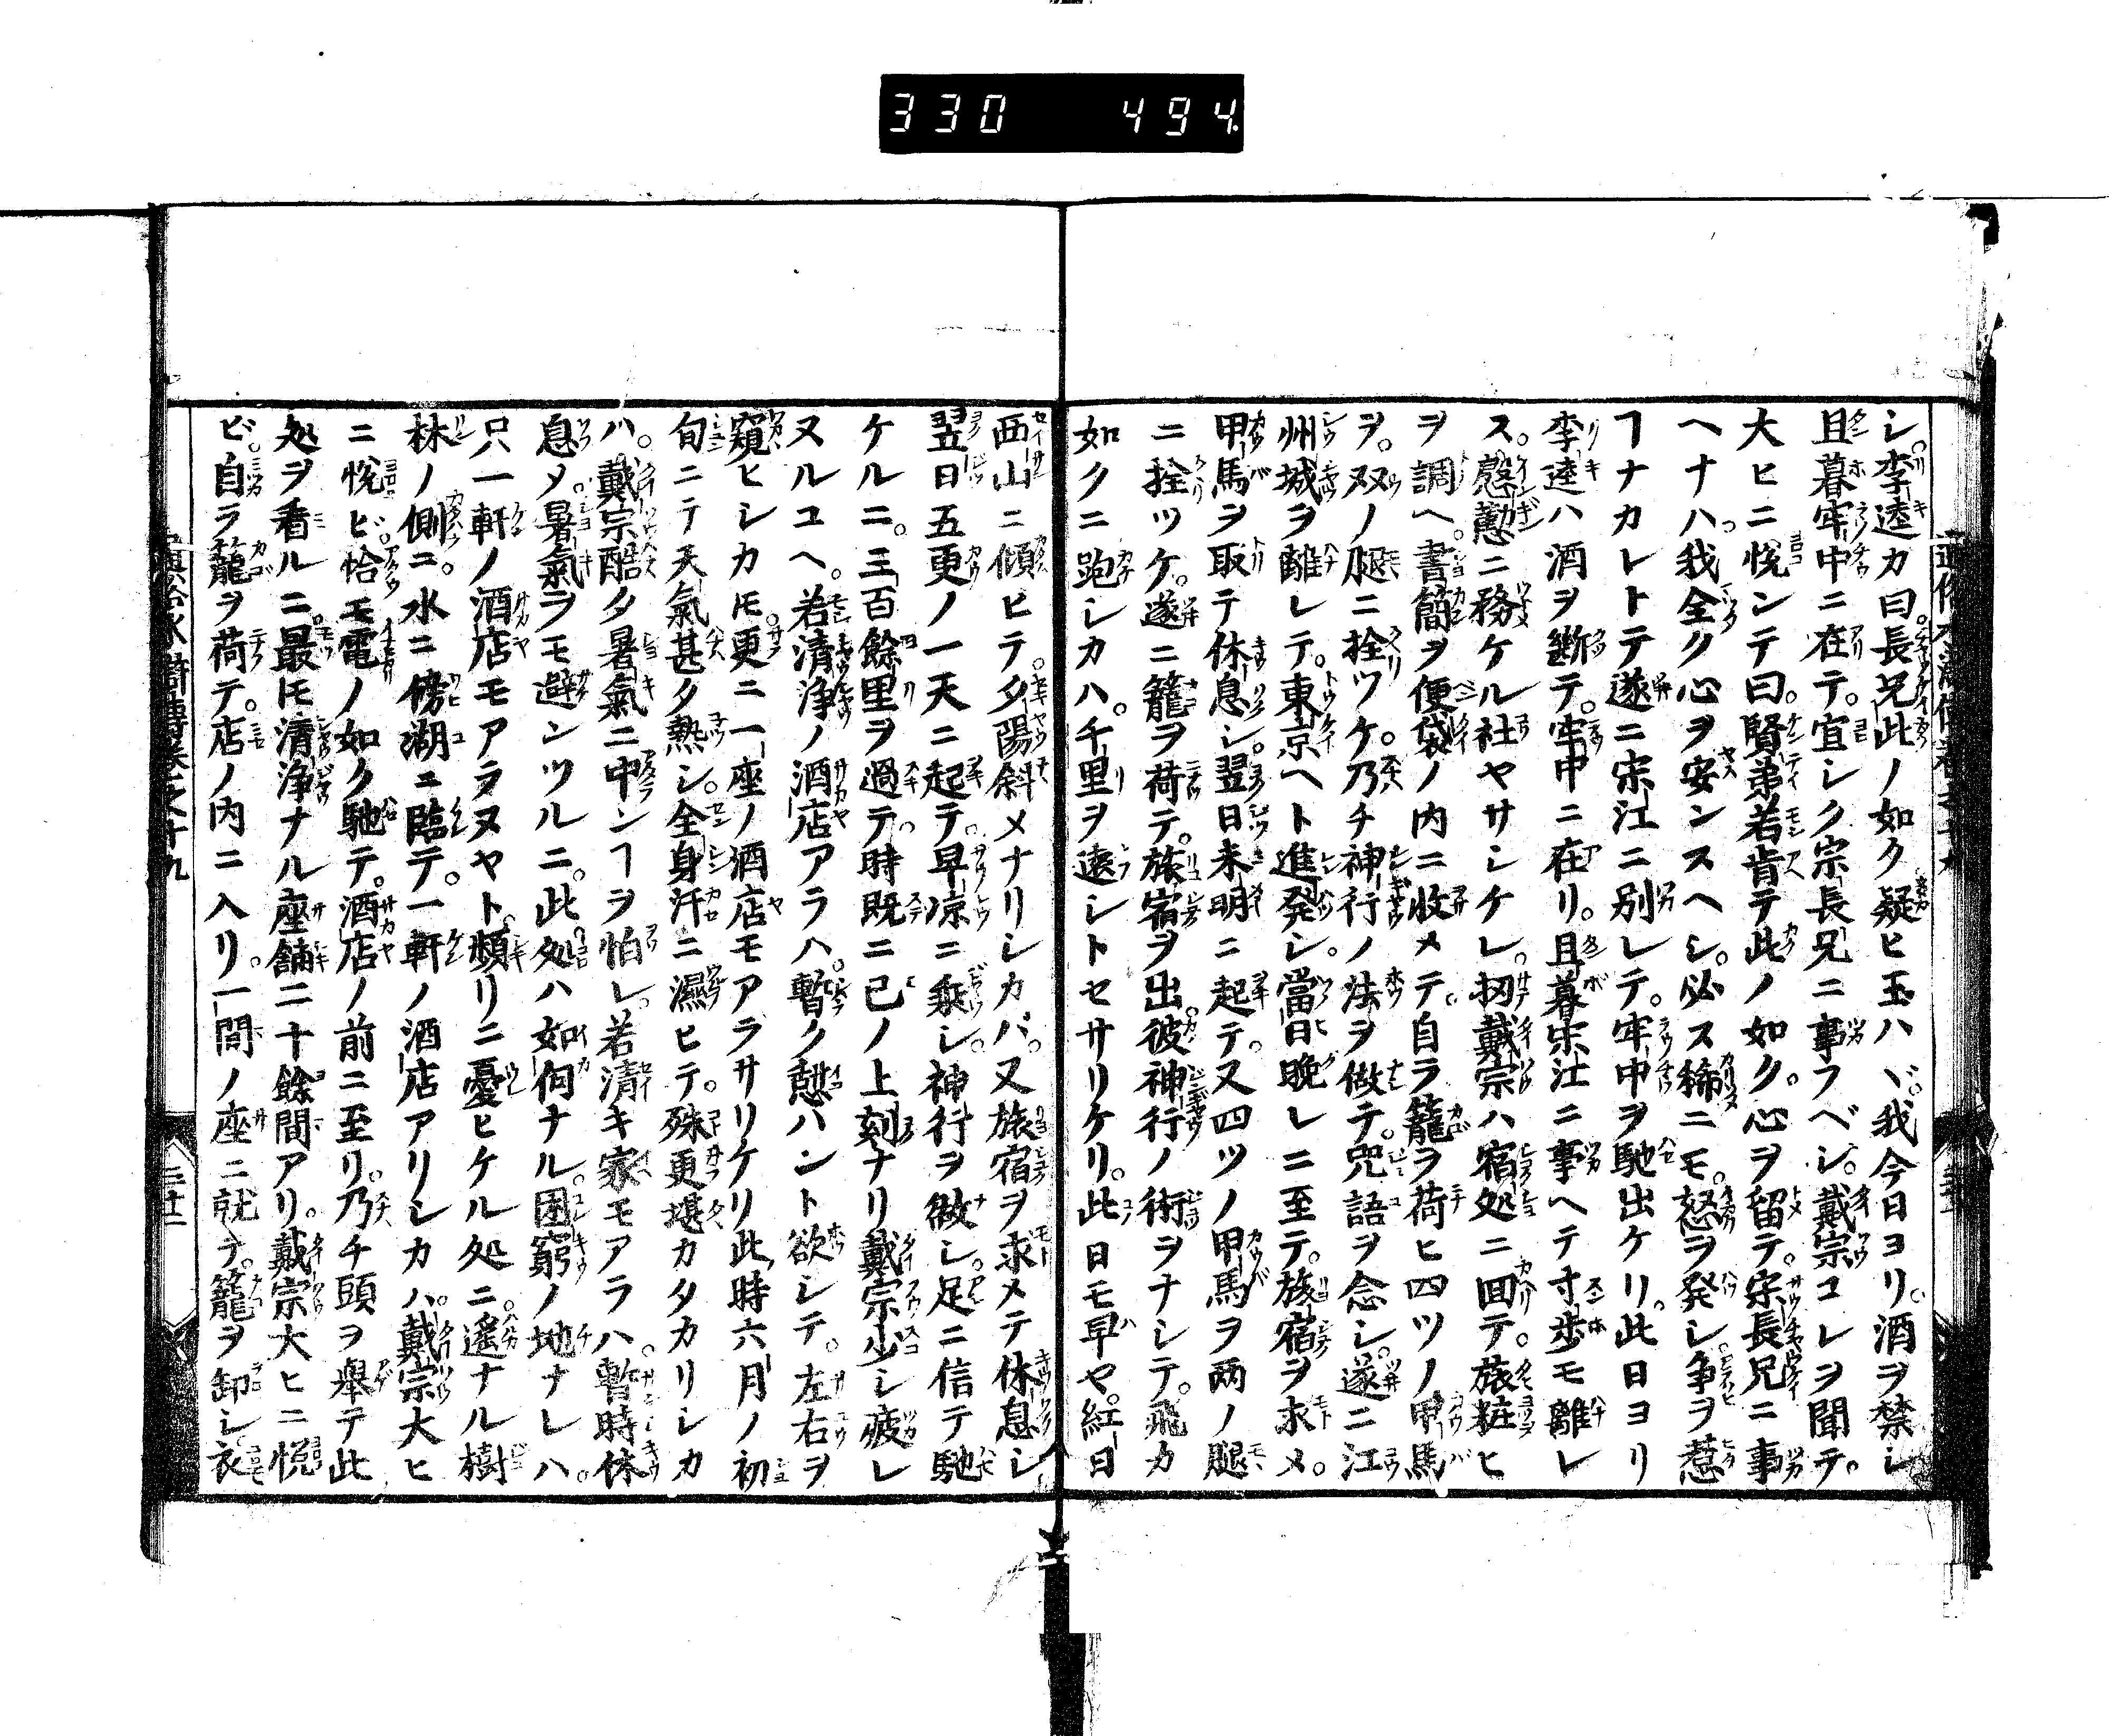 330 494
シ。李逵カ曰。長兄此ノ如ク疑ヒ玉ハヾ。我今日ヨリ。酒ヲ禁シ
且暮牢中ニ在テ。宜シク宗長兄ニ事フベシ。戴宗コレヲ聞テ。
大ヒニ悦ンテ曰。賢弟若肯テ此ノ如ク。心ヲ留テ。宗長兄ニ事
ヘナハ。我全ク心ヲ安ンスヘシ。必ス稀ニモ。怒ヲ発シ。争ヲ惹
ヿナカレトテ遂ニ宋江ニ別レテ。牢中ヲ馳出ケリ。此日ヨリ
李逵ハ酒ヲ断テ。牢中ニ在リ。且暮宋江ニ事ヘテ寸歩モ離レ
ス。慇懃ニ務ケル社ヤサシケレ。扨戴宗ハ宿処ニ回テ。旅粧ヒ
ヲ調ヘ。書簡ヲ便袋ノ内ニ收メテ。自ラ籠ヲ荷ヒ四ツノ甲馬
ヲ。双ノ腿ニ拴ツケ。乃チ神行ノ法ヲ做テ。咒語ヲ念シ。遂ニ江
州城ヲ離レテ。東京ヘト進発シ。當日晩レニ至テ。旅宿ヲ求メ。
甲馬ヲ取テ休息シ。翌日未明ニ起テ。又四ツノ甲馬ヲ両ノ腿
ニ拴ツケ。遂ニ籠ヲ荷テ。旅宿ヲ出。彼神行ノ術ヲナシテ。飛カ
如クニ跑シカハ。千里ヲ遠シトセサリケリ。此日モ早ヤ。紅日
西山ニ傾ヒテ。夕陽斜メナリシカバ。又旅宿ヲ求メテ休息シ
翌日五更ノ一天ニ起テ。早凉ニ乘シ。神行ヲ做シ。足ニ信テ馳
ケルニ。三百餘里ヲ過テ。時既ニ己ノ上刻ナリ戴宗少シ疲レ
ヌルユヘ。若清浄ノ酒店アラハ。暫ク憩ハント欲シテ。左右ヲ
窺ヒシカ𪜈。更ニ一座ノ酒店モアラサリケリ此時六月ノ初
旬ニテ天氣甚タ熱シ。全身汗ニ濕ヒテ。殊更堪カタカリシカ
ハ。戴宗酷タ暑氣ニ中ンヿヲ怕レ。若清キ家モアラハ。暫時休
息メ暑氣ヲモ避ンツルニ。此処ハ如何ナル。困窮ノ地ナレハ。
只一軒ノ酒店モアラヌヤト。頻リニ憂ヒケル処ニ。遙ナル樹
林ノ側ニ。水ニ傍湖ニ臨テ。一軒ノ酒店アリシカハ。戴宗大ヒ
ニ悦ビ。恰モ電ノ如ク馳テ。酒店ノ前ニ至リ。乃チ頭ヲ舉テ此
処ヲ看ルニ。最𪜈清浄ナル座舗二十餘間アリ。戴宗大ヒニ悦
ビ。自ラ籠ヲ荷テ。店ノ内ニ入リ。一間ノ座ニ就テ。籠ヲ卸シ衣